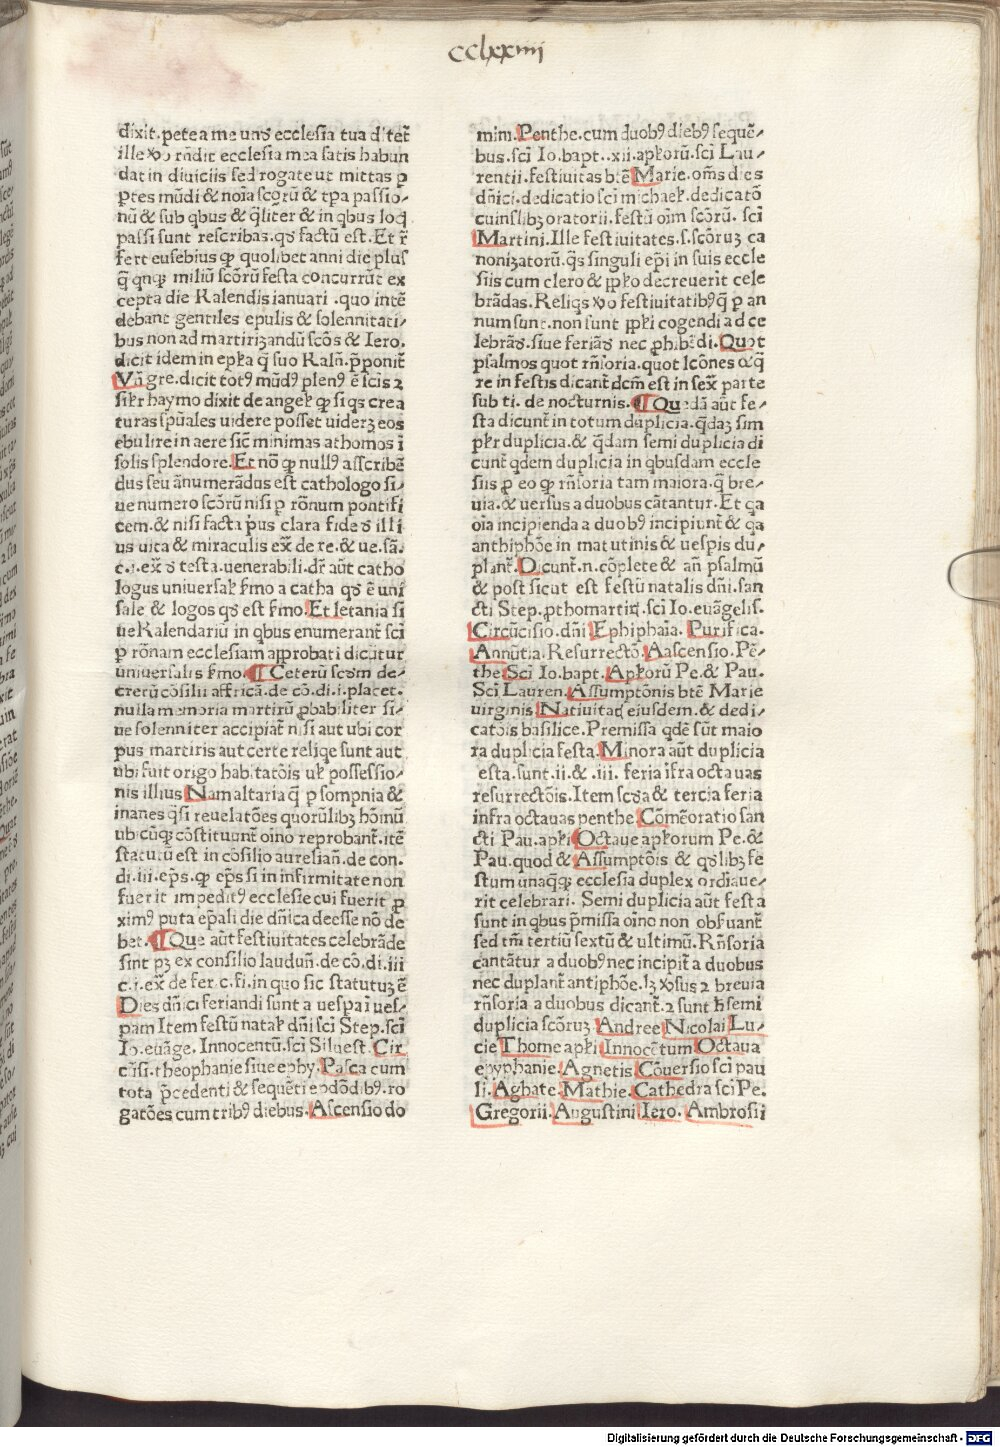 cclxxiiij
dixit.pete a me unᵭ ecclesia tua ditet᷑
ille x̄o rn̄dit ecclesia mea satis habun
dat in diuiciis sed rogate ut mittas ꝑ
ꝑtes mūdi & noīa scoꝝ & tꝑa passio⸗
nū & sub qbus & qliter & in qbus loc
passi sunt rescribas.qᵭ factū est.Et r̄
fert eusebius ꝙ quolibet anni die plus
q̄ qnqꝫ miliū scōrū festa concurrūt ex
cepta die Kalendis ianuari .quo inte
debant gentiles epulis & solennitati⸗
bus non ad martirizandū scōs & Iero.
dicit idem in epl̄a q̄ suo Kaln̄.p̄ponit᷑
Vn̄ gre.dicit totꝰ mūdꝰ plenꝰ ē scis ⁊
sil̄r haymo dixit de angel̄ ꝙ si qs crea
turas sp̄uales uidere posset uiderꝫ eos
ebulire in aere sic̄ minimas athomos ī
solis splendore.Et nō ꝙ nullꝰ asscribē
dus seu ānumerādus est cathologo si⸗
ue numero scōrū nisi ꝑ rōnum pontifi
cem.& nisi facta pͥus clara fide ᵭ illi
us uita & miraculis ex̄ de re.& ue.sā.
c.i.ex̄ ᵭ testa.uenerabili.dr̄ aūt catho
logus uniuersal̄ s̄mo a catha qᵭ ē uni
sale & logos qᵭ est s̄mo.Et letania si
ue Kalendariū in qbus enumerant᷑ sci
ꝑ rōnam ecclesiam approbati dicūtur
uniuersalis s̄mo. ¶ Ceterū scdm de⸗
cretū cōsilii affricā.de cō.di.i.placet.
nulla memoria martirū ꝓbabiliter si⸗
ue solenniter accipiat᷑ nisi aut ubi cor
pus martiris aut certe reliqe sunt aut
ubi fuit origo habitatōis ul̄ possessio⸗
nis illius Nam altaria q̄ ꝑ sompnia &
inanes qsi reuelatōes quorūlibꝫ hōinū
ubicūqꝫ cōstituunt᷑ oīno reprobant᷑.itē
statutū est in cōsilio aurelian̄.de con.
di.iii.ep̄s.ꝙ ep̄s si in infirmitate non
fuerit impeditꝰ ecclesie cui fuerit ꝓ
ximꝰ puta ep̄ali die dn̄ica deesse nō de
bet. ¶ Que aūt festiuitates celebrāde
sint pꝫ ex consilio laudun̄.de cō.di.iii
c.i.ex̄ de fer.c.fi.in quo sic statutuꝫ ē
Dies dn̄ici feriandi sunt a uesꝑa ī ues⸗
pam Item festū natal̄ dn̄i sci Step.sci
Io.euāge. Innocentū.sci Siluest. Cir
cūsi.theophanie siue ephy. Pasca cum
tota p̄cedenti & sequēti epdōdibꝰ. ro
gatōes cum tribꝰ diebus. Ascensio do
mini.Penthe.cum duobꝰ diebꝰ sequē⸗
bus.sci Io.bapt..xii.apl̄orū.sci Lau⸗
rentii.festiuitas btē Marie.om̄s dies
dn̄ici.dedicatio sci michael̄.dedicatō
cuinslibꝫ oratorii.festū oīm scōrū. sci
Martini.Ille festiuitates.s.scōruꝫ ca
nonizatorū.qs singuli ep̄i in suis eccle
siis cum clero & ppl̄o decreuerit cele
brādas.Reliqs x̄o festiuitatibꝰ q̄ ꝑ an
num sunt.non sunt ppl̄i cogendi ad ce
lebrādꝭ.siue feriādꝭ nec ꝓhibēdi.Quot
psalmos quot rn̄soria.quot lcōnes & q
re in festis dicant᷑ dcm̄ est in sex̄ parte
sub ti. de nocturnis. ¶ Quedā aūt fe⸗
sta dicunt᷑ in totum duplicia.qdaꝫ sim
pl̄r duplicia.& qdam semi duplicia di
cunt᷑ qdem duplicia in qbusdam eccle
siis ꝑ eo ꝙ rn̄soria tam maiora.q̄ bre⸗
uia.& uersus a duobus cātantur. Et qa
oīa incipienda a duobꝰ incipiunt᷑ & qa
anthiphōe in matutinis & uespis du⸗
plant᷑.Dicunt.n.cōplete & an̄ psalmū
& post sicut est festū natalis dn̄i.san
cti Step.pthomartiꝝ.sci Io.euāgelis.
Circūcisio.dn̄i Ephiphaīa. Purifica.
Annūtia. Resurrectō. Aascensio. Pē⸗
the Sci Io.bapt. Apl̄orū Pe.& Pau.
Sci Lauren. Assumptōnis btē Marie
uirginis Natiuitaꝭ eiusdem.& dedi⸗
catōis basilice. Premissa qdē sūt maio
ra duplicia festa. Minora aūt duplicia
esta.sunt.ii.& .iii. feria īfra octauas
resurrectōis. Item scᵭa & tercia feria
infra octauas penthe Cōmēoratio san
cti Pau.apl̄i Octaue apl̄orum Pe.&
Pau.quod & Assumptōis & qᵭlibꝫ fe
stum unaqqꝫ ecclesia duplex ordiaue⸗
rit celebrari. Semi duplicia aūt festa
sunt in qbus p̄missa oīno non obs̄uant᷑
sed tm̄ tertiū sextū & ultimū. Rn̄soria
cantātur a duobꝰ nec incipit᷑ a duobus
nec duplant᷑ antiphōe.lꝫ x̄sus ⁊ breuia
rn̄soria a duobus dicant᷑. ⁊ sunt h̄ semi
duplicia scōruꝫ Andree Nicolai Lu⸗
cie Thome apl̄i Innocētum Octaua
epyphanie. Agnetis Cōuersio sci pau
li. Aghate Mathie. Cathedra sci Pe.
Gregorii. Augustini Iero. Ambrosii
Digitalisierung gefördert durch die Deutsche Forschungsgemeinschaft - DFG